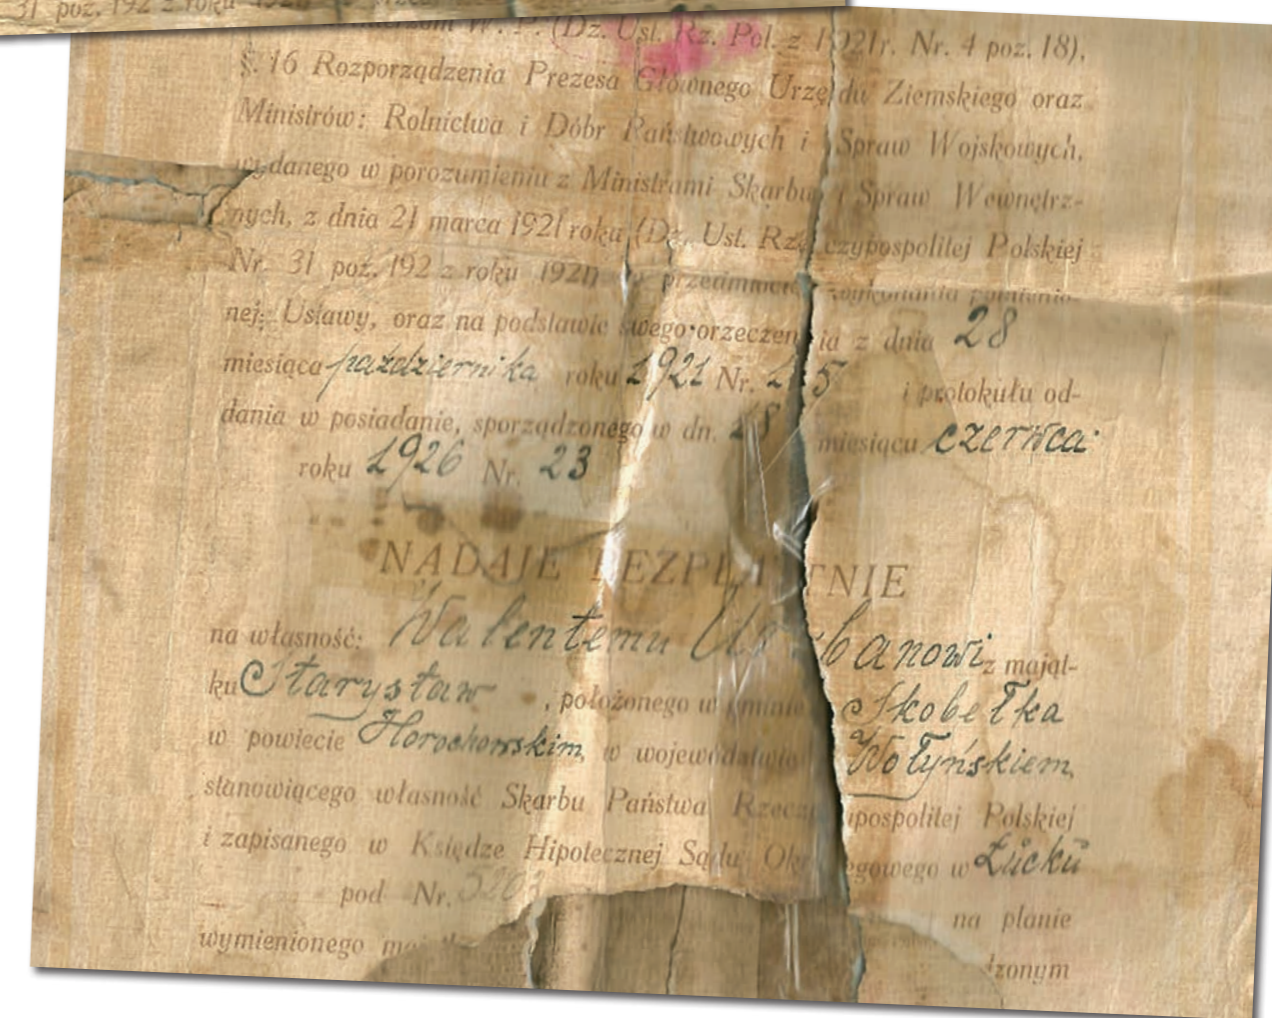 31 poz. 192 z roku
W. P. (Dz. Ust. Rz. Pol. z 1921r. Nr. 4 poz. 18),
§. 16 Rozporządzenia Prezesa Głównego Urzędu Ziemskiego oraz
Ministrów: Rolnictwa i Dóbr Państwowych i Spraw Wojskowych,
wydanego w porozumieniu z Ministrami Skarbu i Spraw Wewnętrz-
nych, z dnia 21 marca 1921 roku (Dz. Ust. Rzeczypospolitej Polskiej
Nr. 31 poz. 192 z roku 1921) w przedmiocie wykonania pomienio-
nej Ustawy, oraz na podstawie swego orzeczenia z dnia 28
miesiąca października roku 1921 Nr. i protokułu od-
dania w posiadanie, sporządzonego w dn. miesiącu czerwca
roku 1926 Nr. 23
NADAJE BEZPŁATNIE
na własność: Walentemu Urbanowi z mająt-
ku Starystaw, położonego w gminie Skobełka
w powiecie Horochowskim, w województwie Wołyńskiem
stanowiącego własność Skarbu Państwa Rzeczypospolitej Polskiej
i zapisanego w Księdze Hipotecznej Sądu Okręgowego w Łucku
pod Nr. na planie
wymienionego